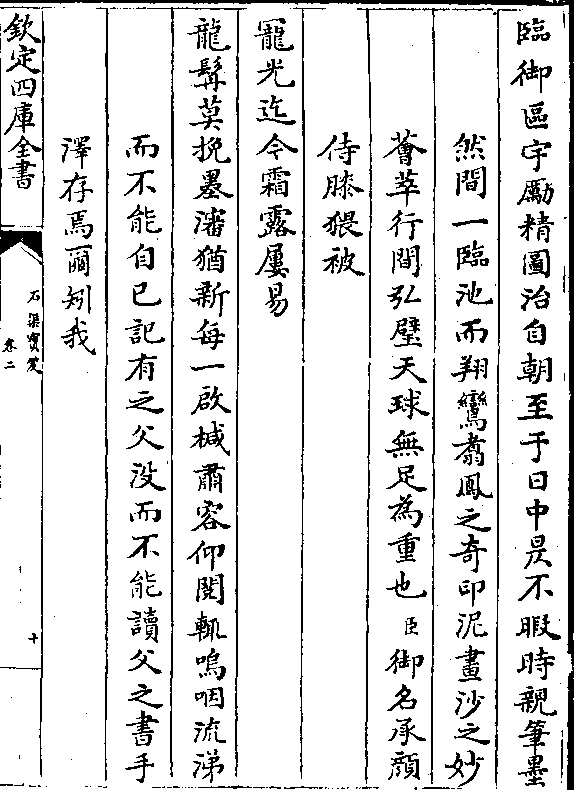 臨御區宇勵精圖治自朝至于日中昃不暇時親筆墨
然間一臨池而翔鸞翥鳳之奇印泥畫沙之妙
薈萃行間弘璧天球無足為重也臣御名承顔
侍膝猥被
寵光迄今霜露屢易
龍髯莫挽墨瀋猶新每一啟椷肅容仰閱輒嗚咽流涕
而不能自已記有之父没而不能讀父之書手
澤存焉爾矧我
欽定四庫全書
石渠寶笈
卷二
十